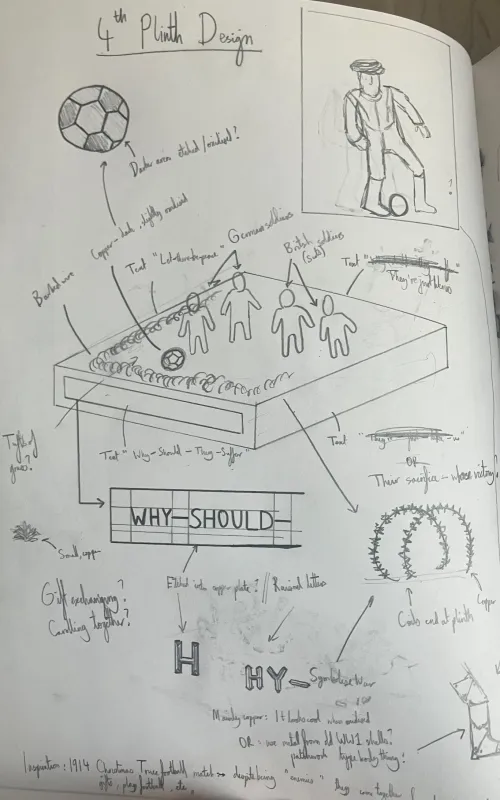 4th Plinth Design
Darker areas etched/oxidised?
Copper - balls, slightly oxidised
Barbed wire
Text "Let-there-be-peace"
German soldiers
British soldiers
(subs)
Text "
They're just humans
Tufts of
grass?
Text "Why-Should-They-Suffer"
Text "They
OR
Their sacrifice - whose victory?
WHY-SHOULD-
Small, copper
Gift exchanging?
Carolling together?
Etched into copper plate? // Raised letters
Coils end at plinth
Copper
H
HY-
Symbolise War
Mainly copper: It looks cool when oxidised
OR: use metal from old WW1 shells?
patchwork type body thing?
Inspiration: 1914 Christmas Truce football match → despite being "enemies" they can together
gifts, play football, etc,
1.